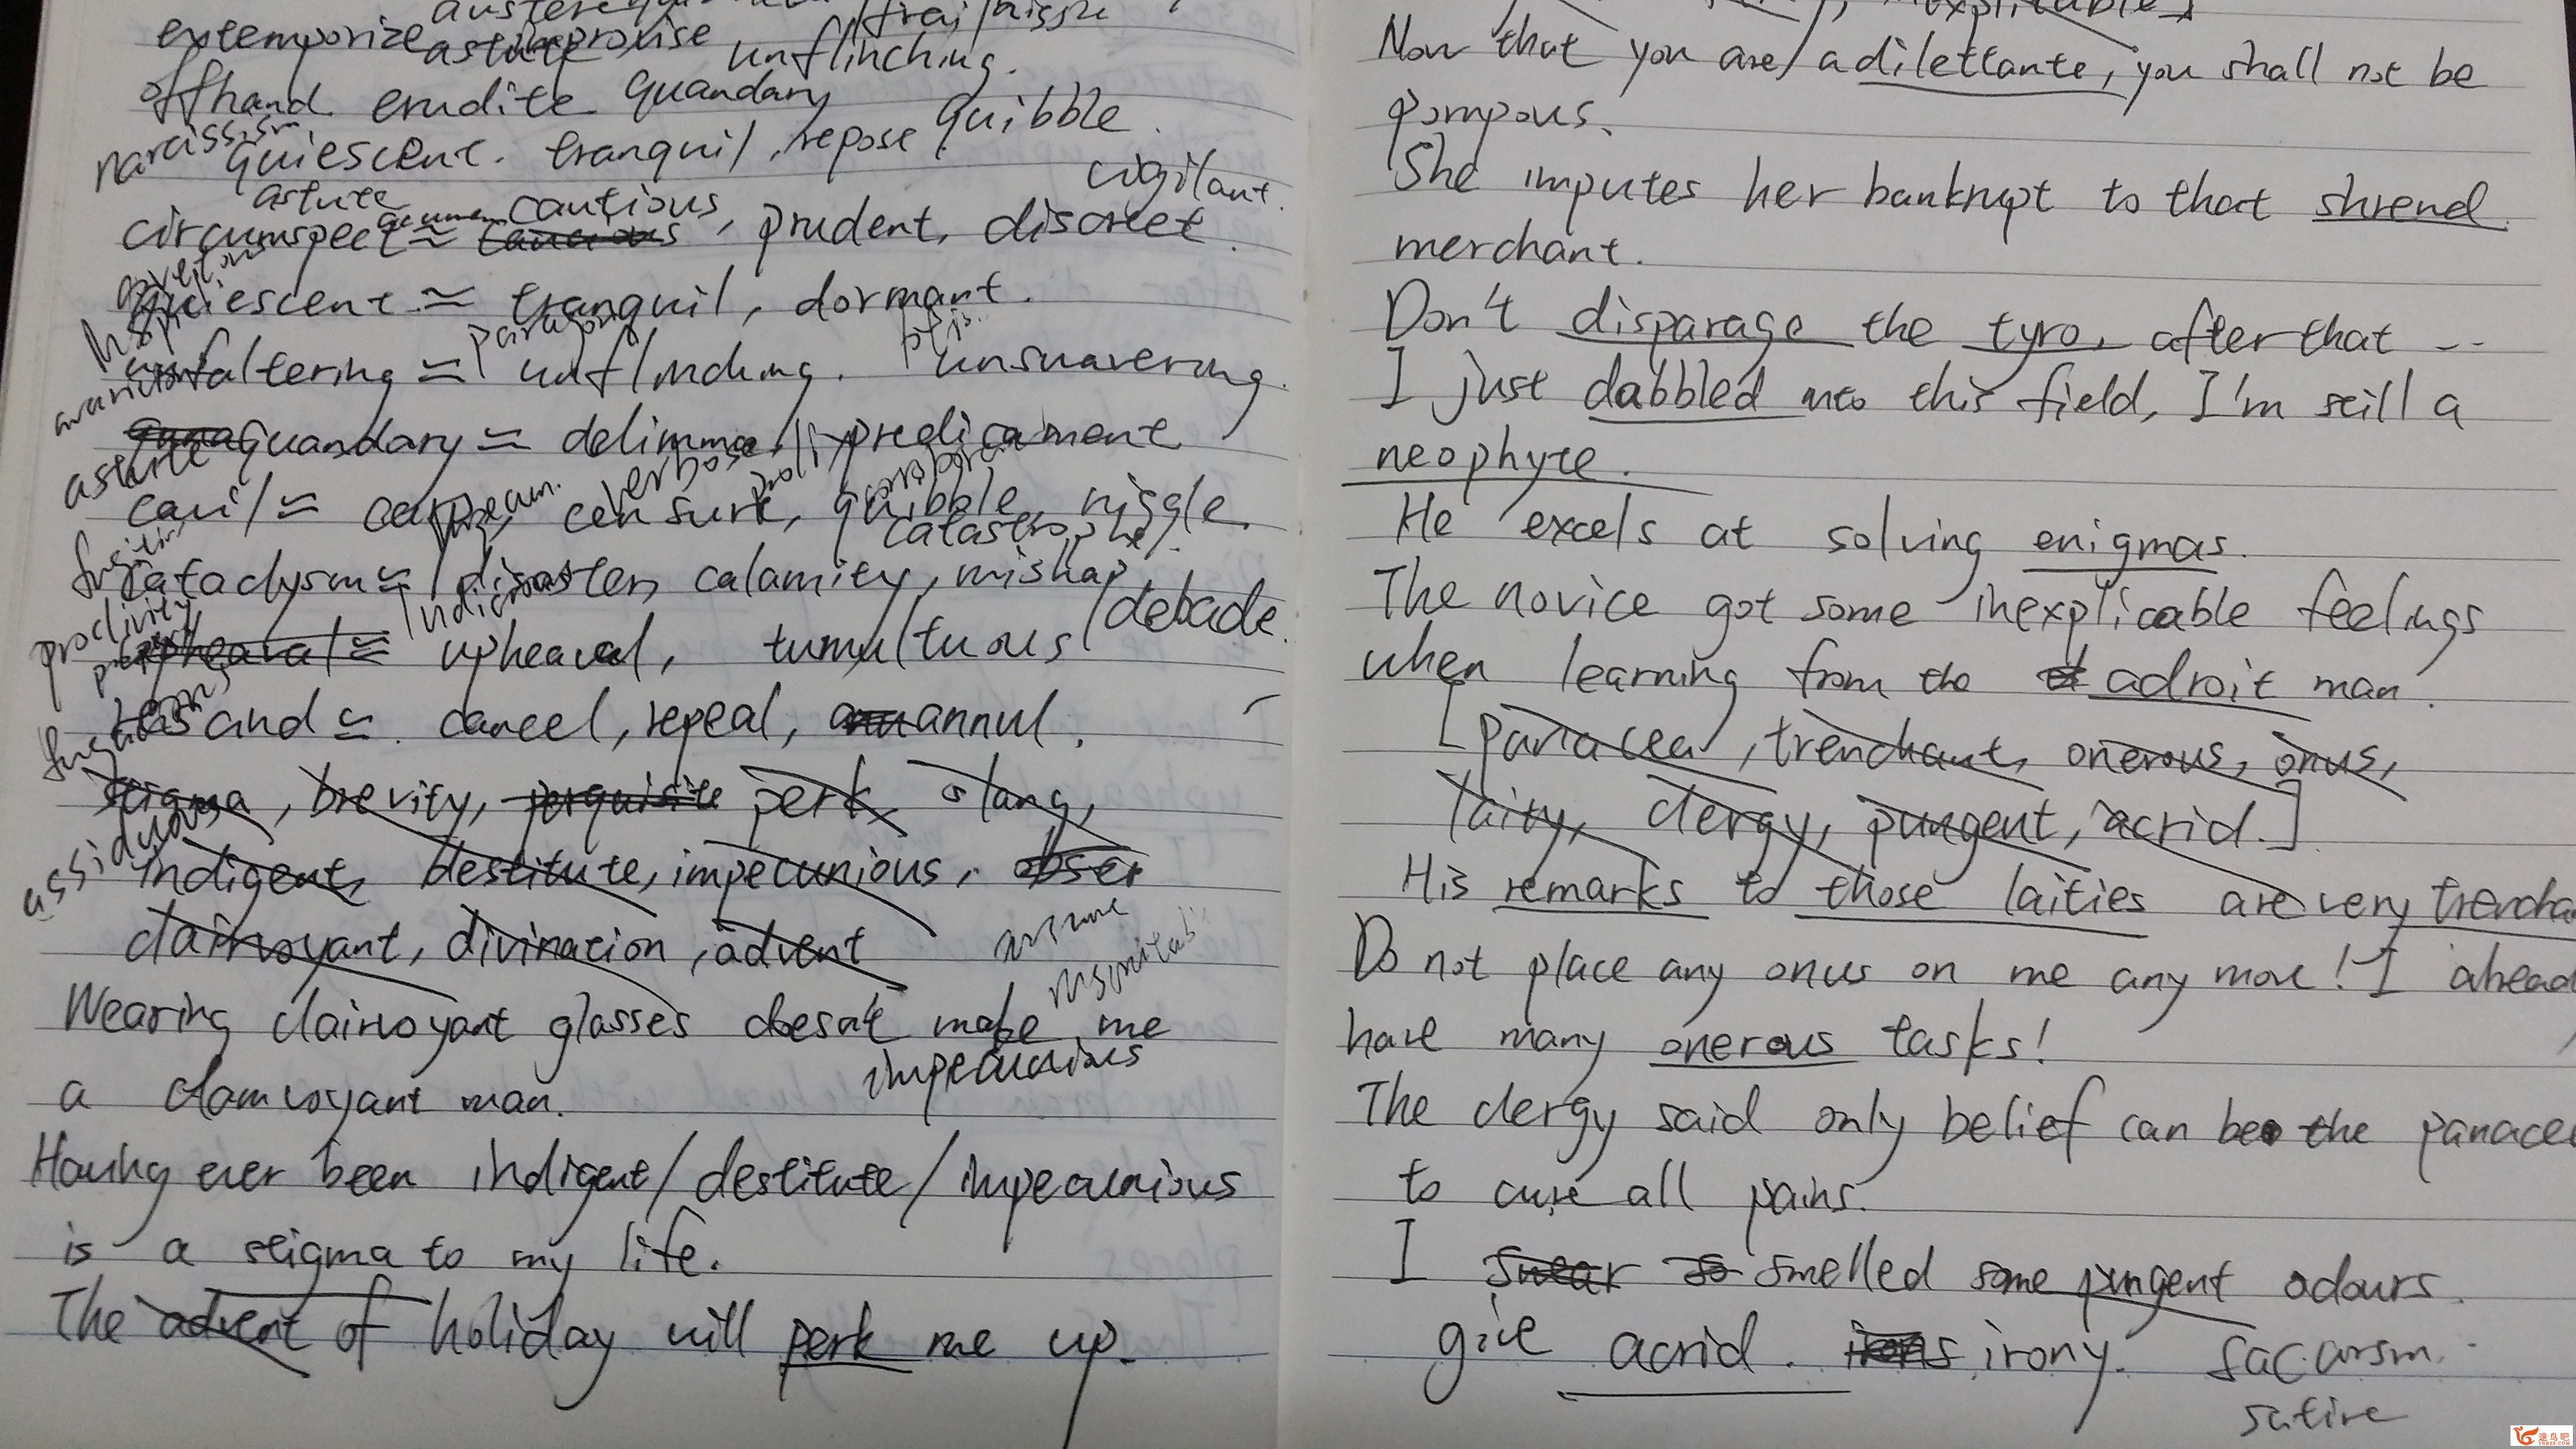 extemporize improvise
astute unflinching.
offhand erudite quandary
narcissism quiescent. tranquil, repose quibble.
vigilant.
astute acumen cautious
circumspect ≃ , prudent, discreet.
quiescent ≃ tranquil, dormant.
paragon
unfaltering ≃ unflinching. unsuavering.
quandary ≃ delimma, predicament
astute verbose
cavil ≃ carp, censure, quibble, niggle.
catastrophe.
cataclysm ≃ disaster, calamity, mishap,
proclivity debacle.
upheaval ≃ upheaval, tumultuous
rescand ≃ cancel, repeal, annul.
stigma, brevity, perquisite perk, slang,
assiduous
indigent, destitute, impecunious, obser
clairvoyant, divination, advent
Wearing clairvoyant glasses doesn't make me
impecunious
a clairvoyant man.
Having ever been indigent/destitute/impecunious
is a stigma to my life.
The advent of holiday will perk me up.
Now that you are a dilettante, you shall not be
pompous.
She imputes her bankrupt to that shrend
merchant.
Don't disparage the tyro, after that --
I just dabbled into this field, I'm still a
neophyte.
He excels at solving enigmas.
The novice got some inexplicable feelings
when learning from the adroit man.
[panacea, trenchant, onerous, onus,
laity, clergy, pungent, acrid.]
His remarks to those laities are very trencha
Do not place any onus on me any more! I
have many onerous tasks!
The clergy said only belief can be the panace
to cure all pains.
I swear so smelled some pungent odours.
give acrid. irony. sacarsm.
satire
途鸟吧